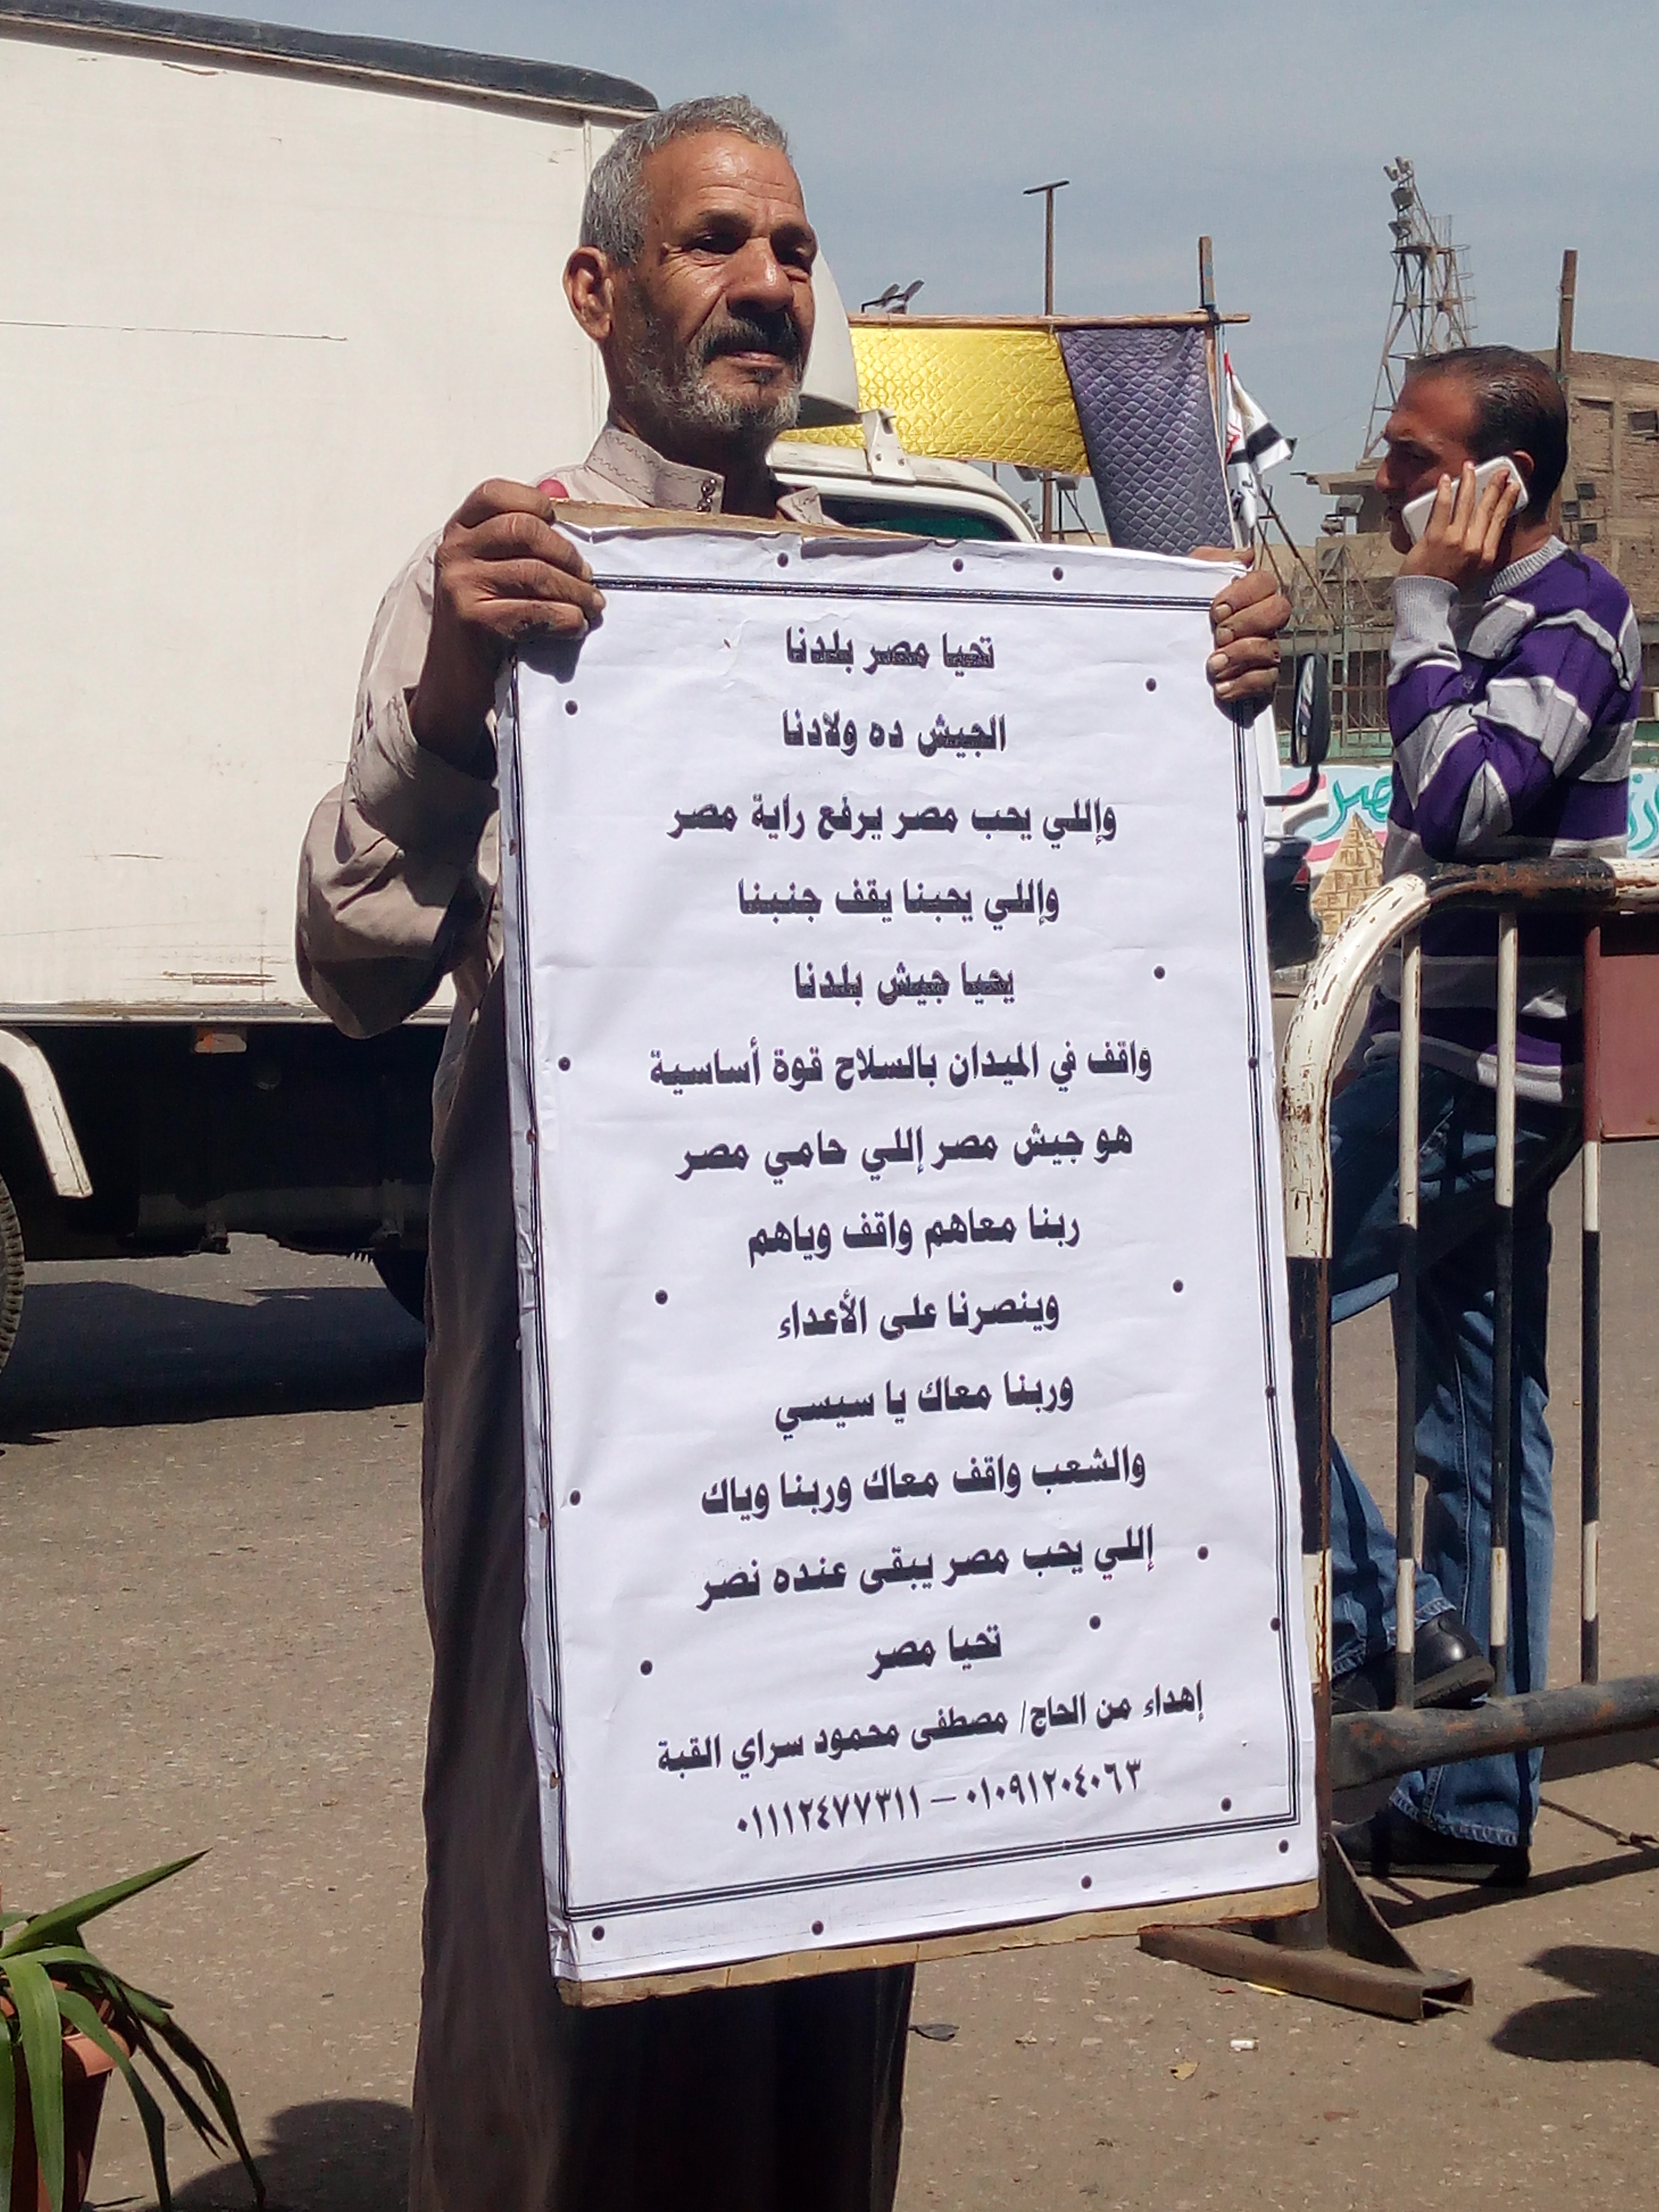 تحيا مصر بلدنا
الجيش ده ولادنا
وإللي يحب مصر يرفع راية مصر
وإللي يحبنا يقف جنبنا
يحيا جيش بلدنا
واقف في الميدان بالسلاح قوة أساسية
هو جيش مصر إللي حامي مصر
ربنا معاهم واقف وياهم
وينصرنا على الأعداء
وربنا معاك يا سيسي
والشعب واقف معاك وربنا وياك
إللي يحب مصر يبقى عنده نصر
تحيا مصر
إهداء من الحاج/ مصطفى محمود سراي القبة
٠١٠٩١٢٠٤٠٦٣ – ٠١١١٢٤٧٧٣١١